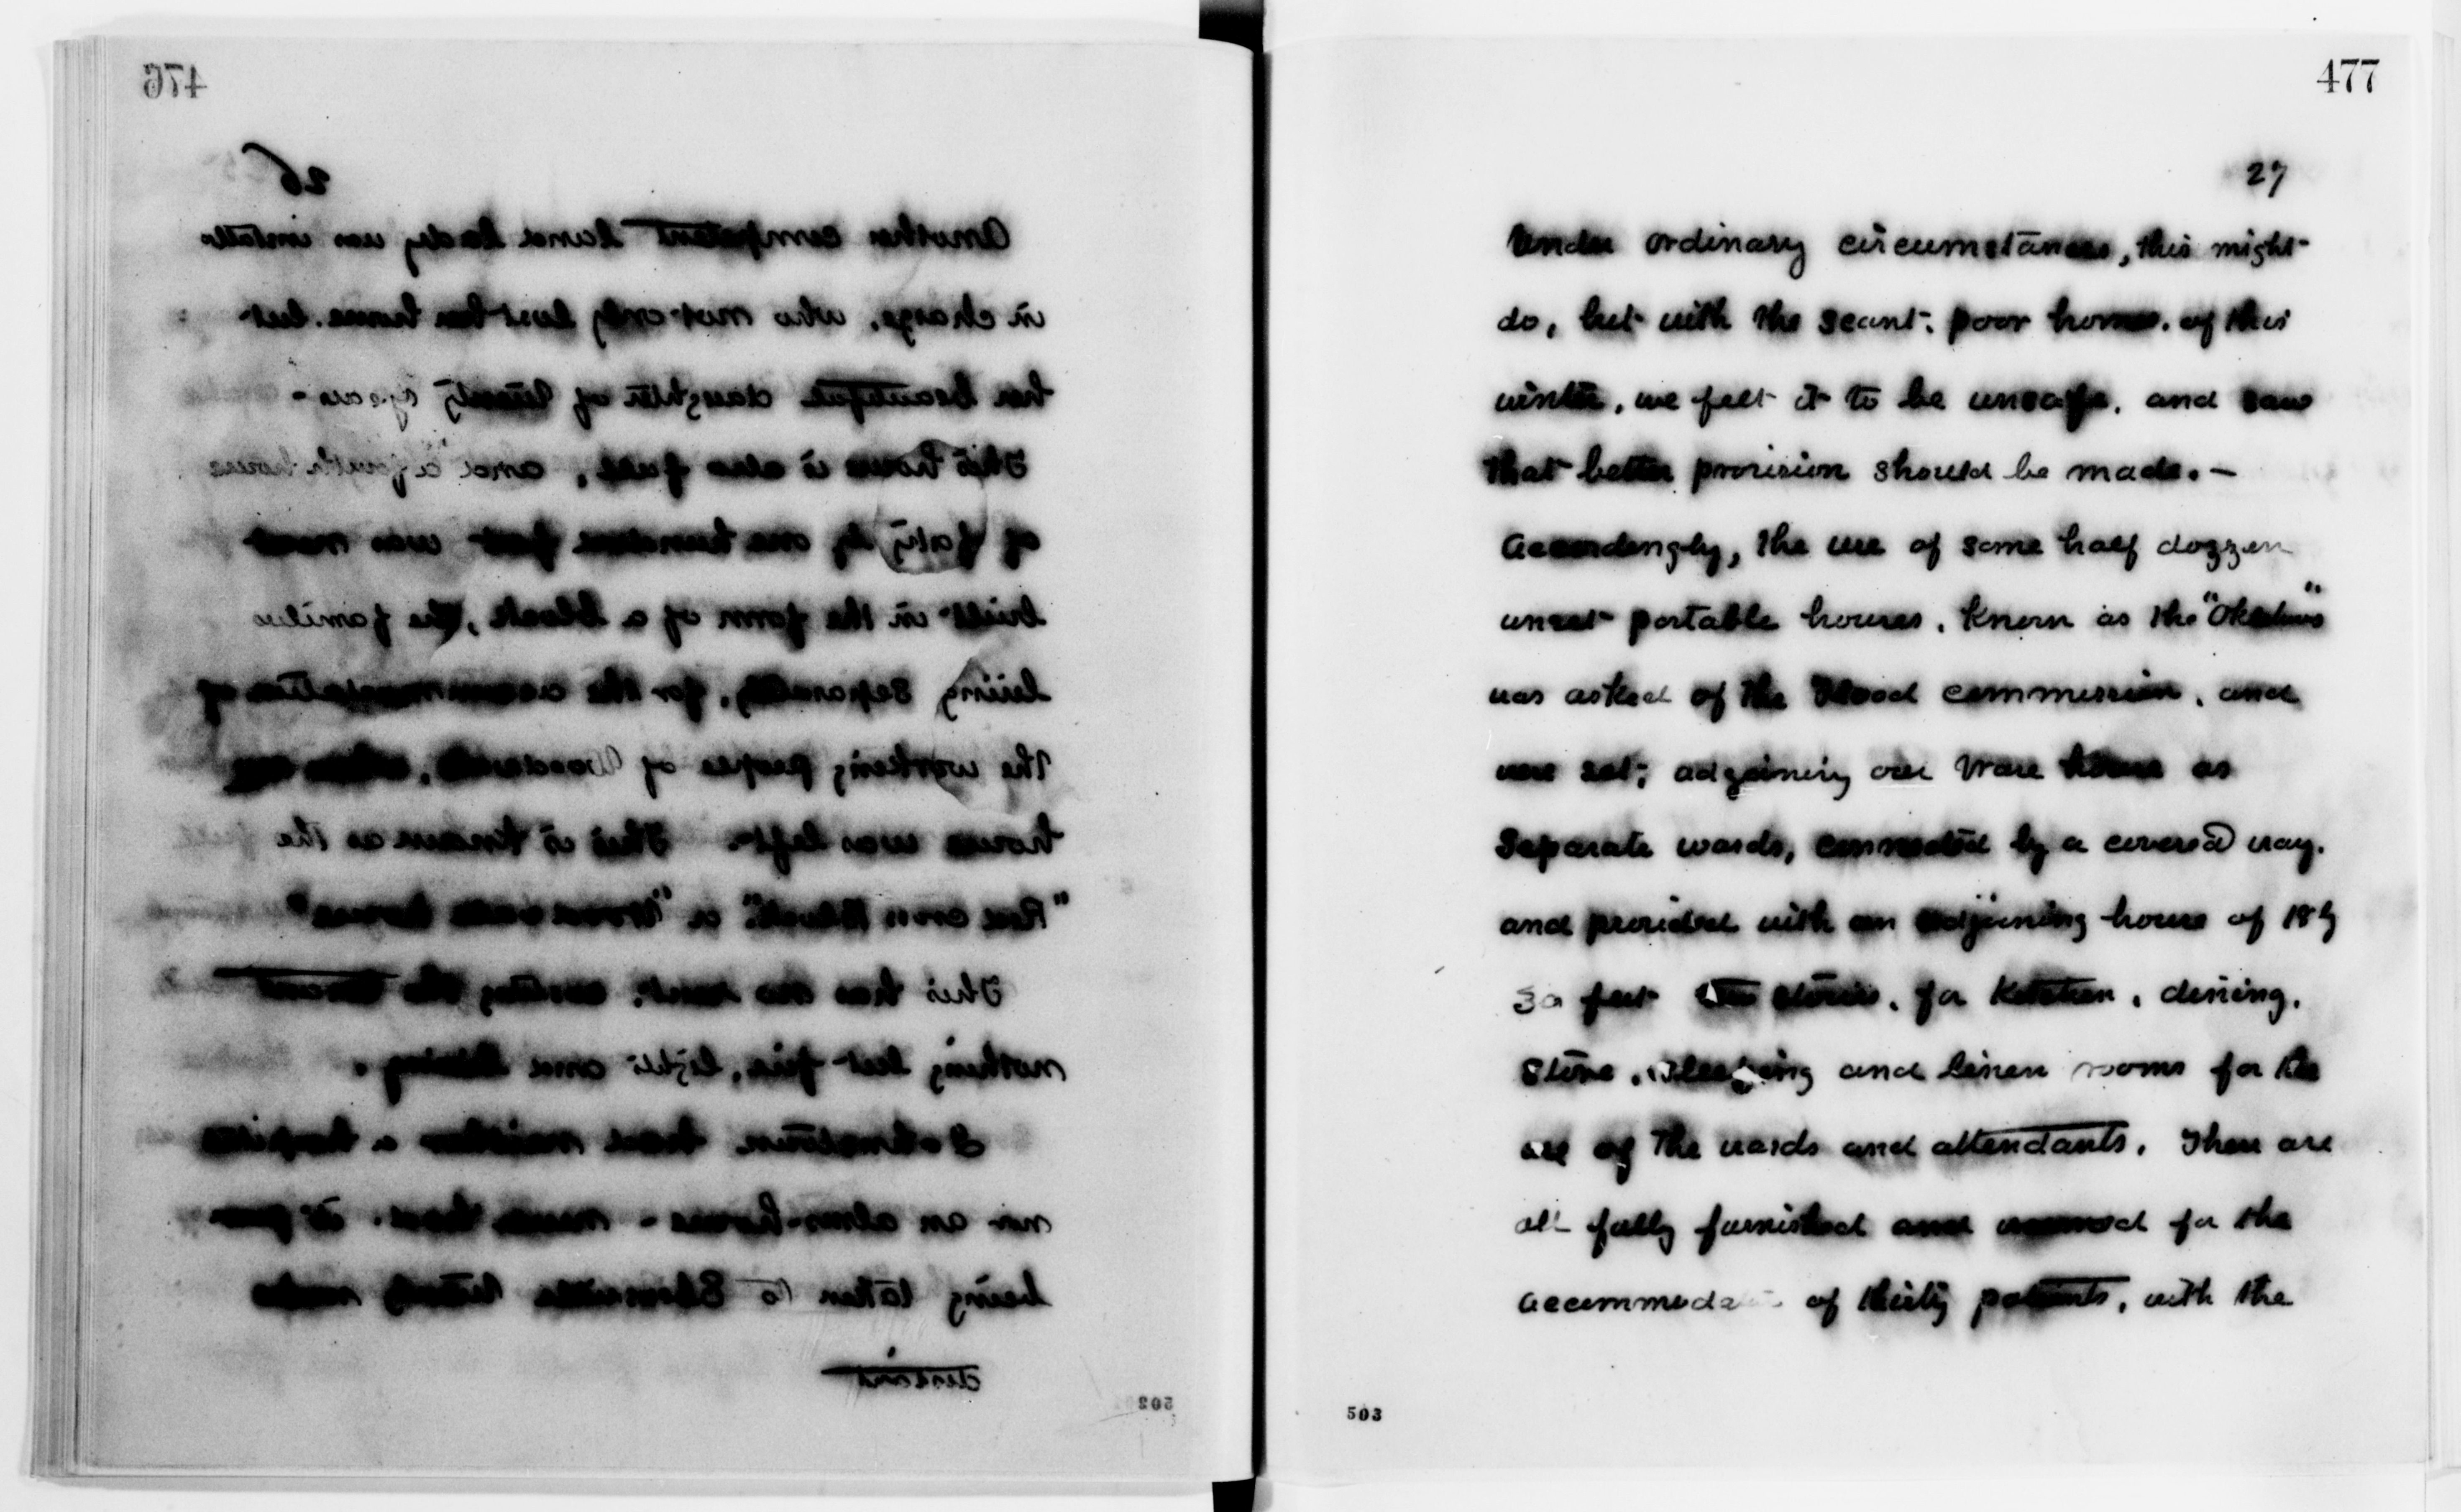 476
26
Another competent lund lady was installed
in charge, who not only lost her home, but
her beautiful daughter of twenty years -
This house is also full, and a fourth house
of forty by one hundred feet was next
built in the form of a block, the families
living separately, for the accommodation of
The working people of Woodvale, where one
house was left This is known as the
"Red cross Block" or "Woodvale house"
This has no rent, costing the
nothing but fire, lights and living.
Johnstown has neither a hospital
nor an alms-house - must have. its poor
being taken to Ebensville twenty miles
distant
502
477
27
Under ordinary circumstances, this might
do, but with the scant, poor homes. of this
winter, we felt it to be unsafe, and saw
that better provision should be made. —
Accordingly, the use of some half dozzen
unset portable houses, known as the "Oklahomas"
was asked of the Flood commission, and
were set; adjoining our Ware house as
Separate wards, connected by a covered way.
and provided with an adjoining house of 18 by
30 feet two stories, for Kitchen, dining,
Store, sleeping and linen rooms for the
use of The wards and attendants. These are
all fully furnished and warmed for the
accommodation of thirty patients, with the
503